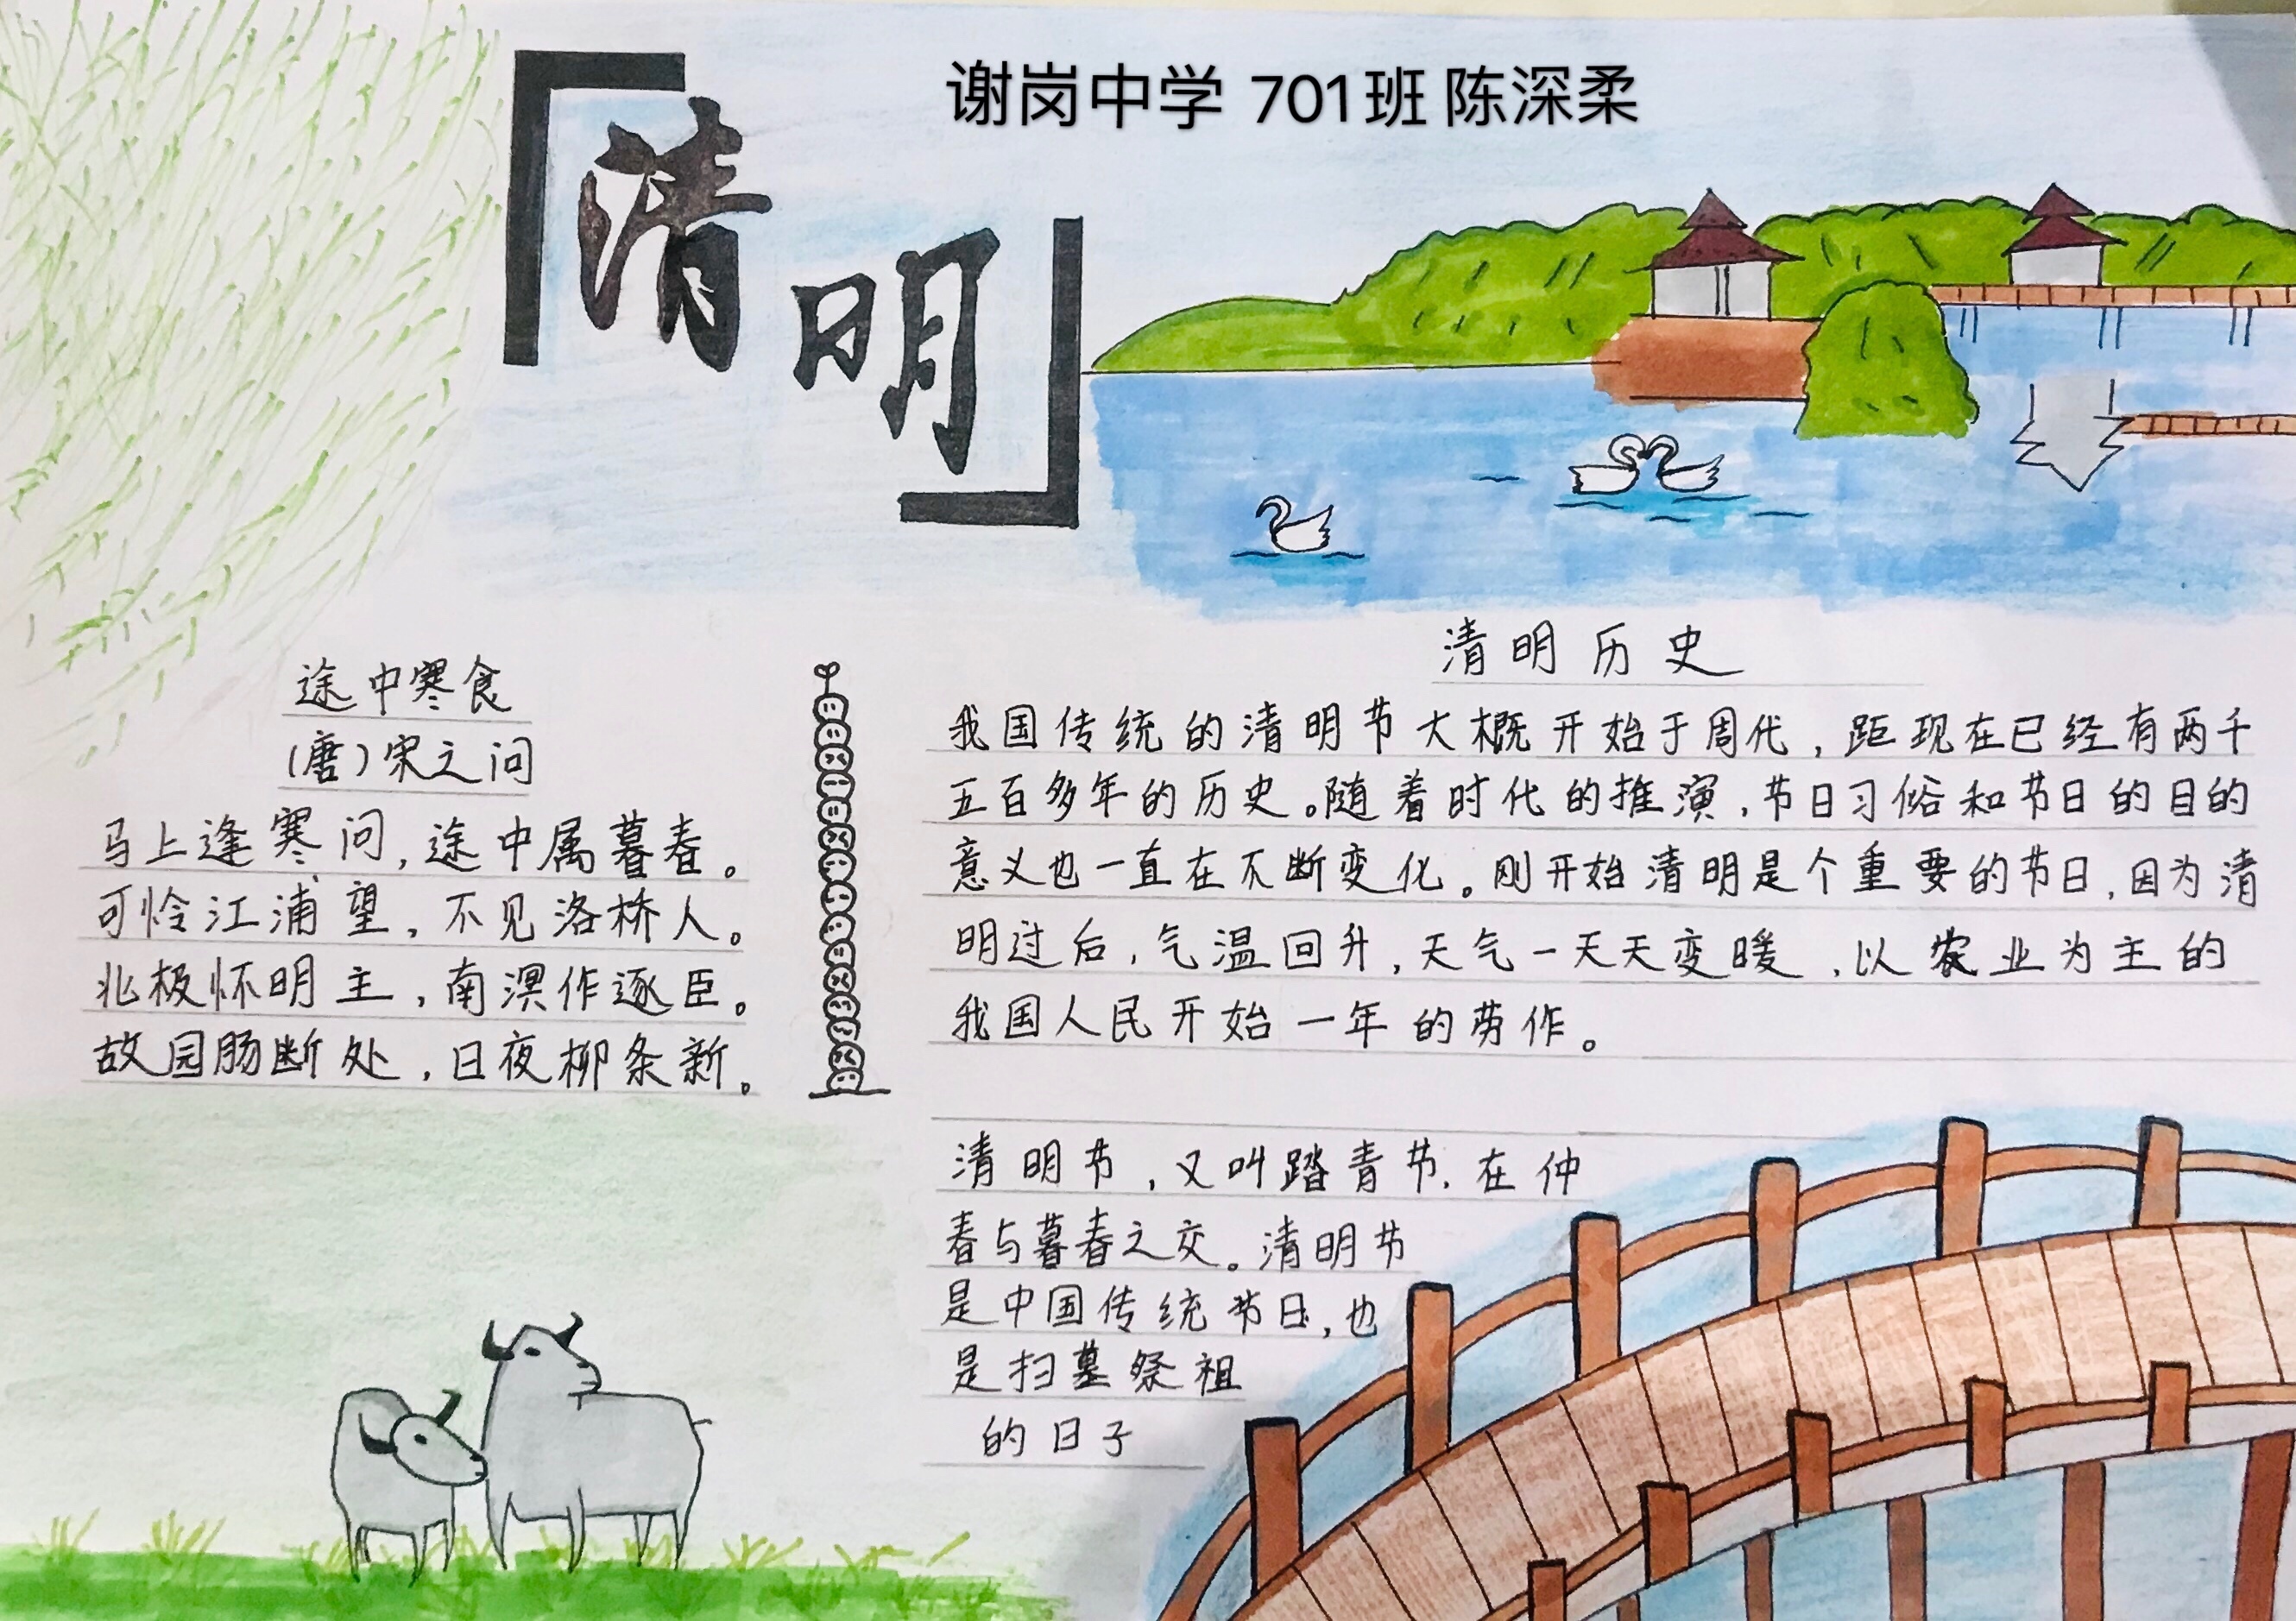 谢岗中学 701班 陈深柔
清明
途中寒食
(唐)宋之问
马上逢寒问,途中属暮春。
可怜江浦望,不见洛桥人。
北极怀明主,南溟作逐臣。
故园肠断处,日夜柳条新。
清明历史
我国传统的清明节大概开始于周代,距现在已经有两千
五百多年的历史。随着时代的推演,节日习俗和节日的目的
意义也一直在不断变化。刚开始清明是个重要的节日,因为清
明过后,气温回升,天气一天天变暖,以农业为主的
我国人民开始一年的劳作。
清明节,又叫踏青节.在仲
春与暮春之交。清明节
是中国传统节日,也
是扫墓祭祖
的日子